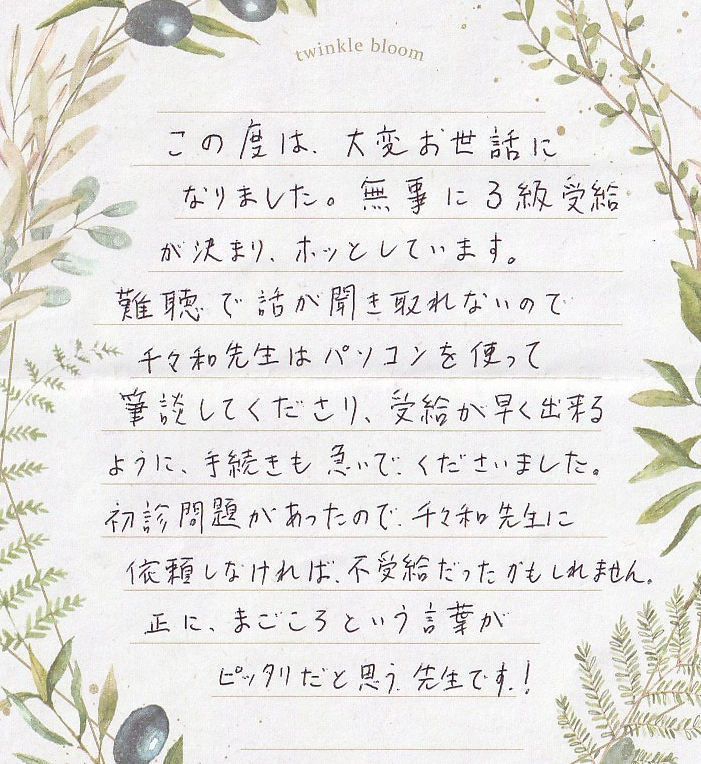 twinkle bloom
この度は、大変お世話に
なりました。無事に3級受給
が決まり、ホッとしています。
難聴で話が聞き取れないので
千々和先生はパソコンを使って
筆談してくださり、受給が早く出来る
ように、手続きも急いでくださいました。
初診問題があったので、千々和先生に
依頼しなければ、不受給だったかもしれません。
正に、まごころという言葉が
ピッタリだと思う先生です!